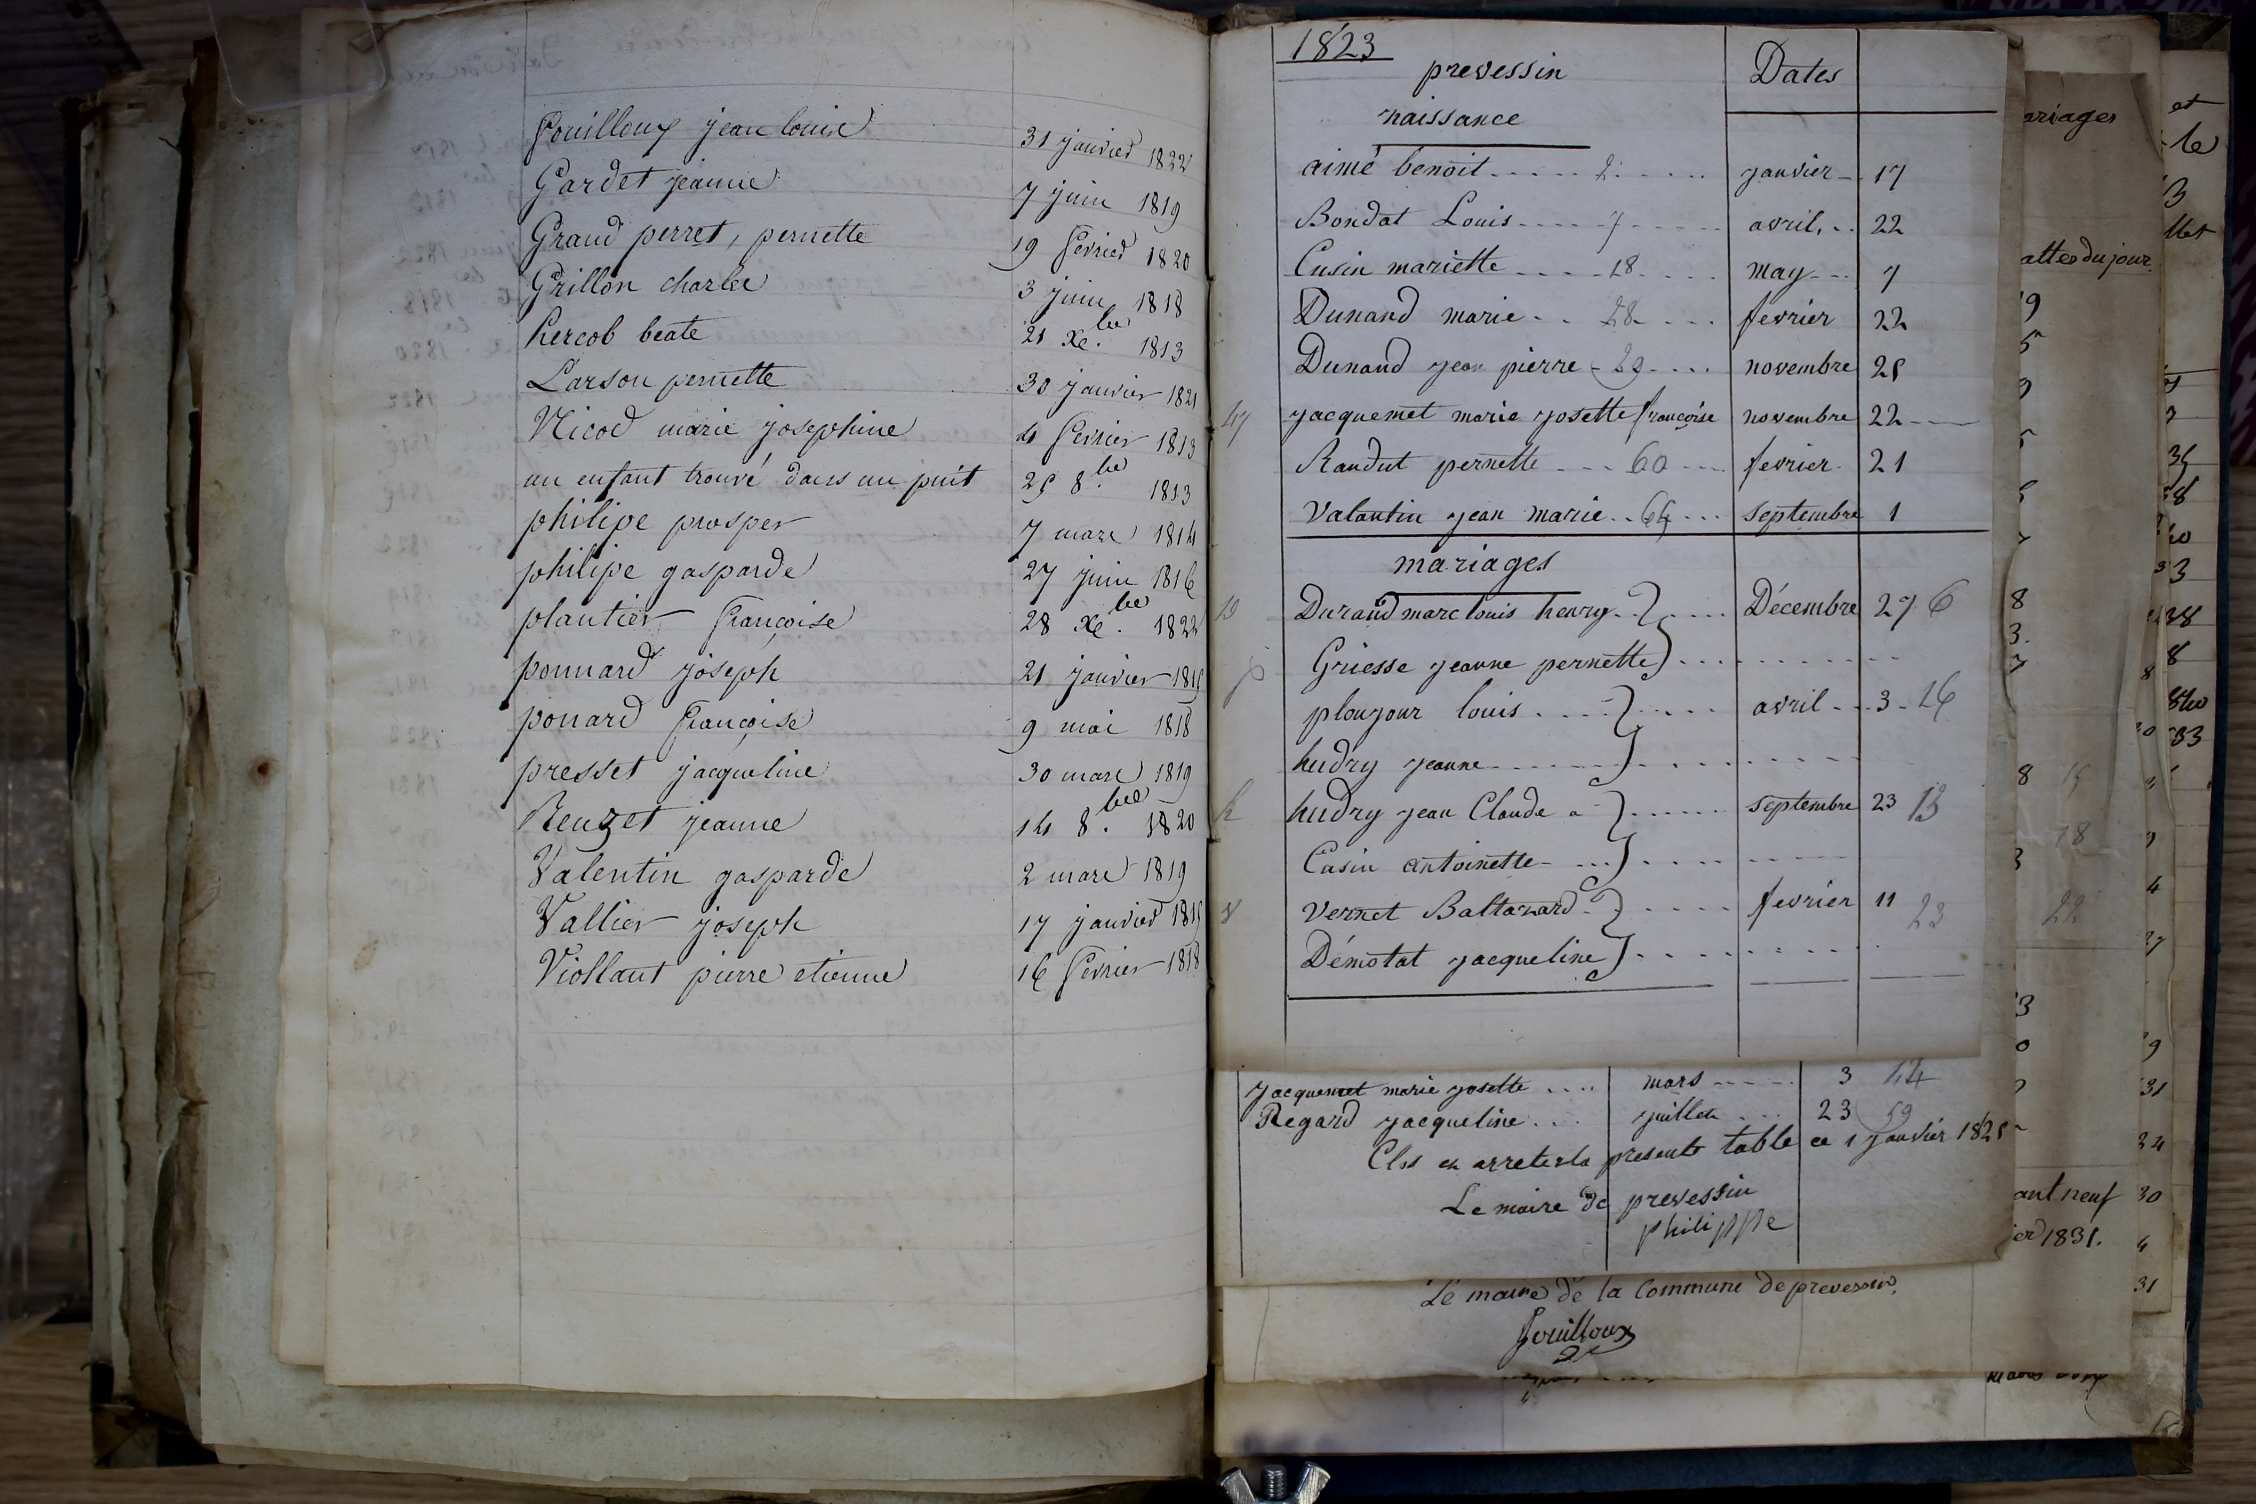 fouilloux jean louis 31 janvier 1822
Gardet jeanne 7 juin 1819
Grand perret, pernette 19 fevrier 1820
Grillon charle 3 juin 1818
hercob beate 21 xe.bre 1813
Larson pernette 30 janvier 1821
Nicod marie josephine 4 fevrier 1813
un enfant trouvé dans un puit 25 8.bre 1813
philipe prosper 7 mars 1814
philipe gasparde 27 juin 1816
plantier françoise 28 xe.bre 1822
ponnard joseph 21 janvier 1815
ponard françoise 9 mai 1818
presset jacqueline 30 mars 1819
Renzet jeanne 14 8.bre 1820
Valentin gasparde 2 mars 1819
Vallier joseph 17 janvier 1815
Viollant pierre etienne 16 fevrier 1818
1823
prevessin Dates
naissance
aimé benoit 2 janvier 17
Bondat Louis 7 avril 22
Cusin mariette 18 may 7
Dunand marie 28 fevrier 22
Dunand jean pierre 29 novembre 25
47 jacquemet marie josette françoise novembre 22
Raudut pernette 60 fevrier 21
Valantin jean marie 64 septembre 1
mariages
10 Durand marc louis henry Décembre 27 6
Griesse jeanne pernette
ploujour louis avril 3 16
hudry jeanne
hudry jean Claude septembre 23 13
Cusin antoinette
Vernet Baltazard fevrier 11 23
Démotat jacqueline
jacquemet marie josette mars 3 44
Regard jacqueline juillet 23 59
Clos et arreter la presente table ce 1 janvier 1825
Le maire de prevessin
philippe
Le maire de la Commune de prevessin,
fouilloux
ariages
attes du jour
19
5
8
3.
7
8 15
18
22
ant neuf
ier 1831.
et
le